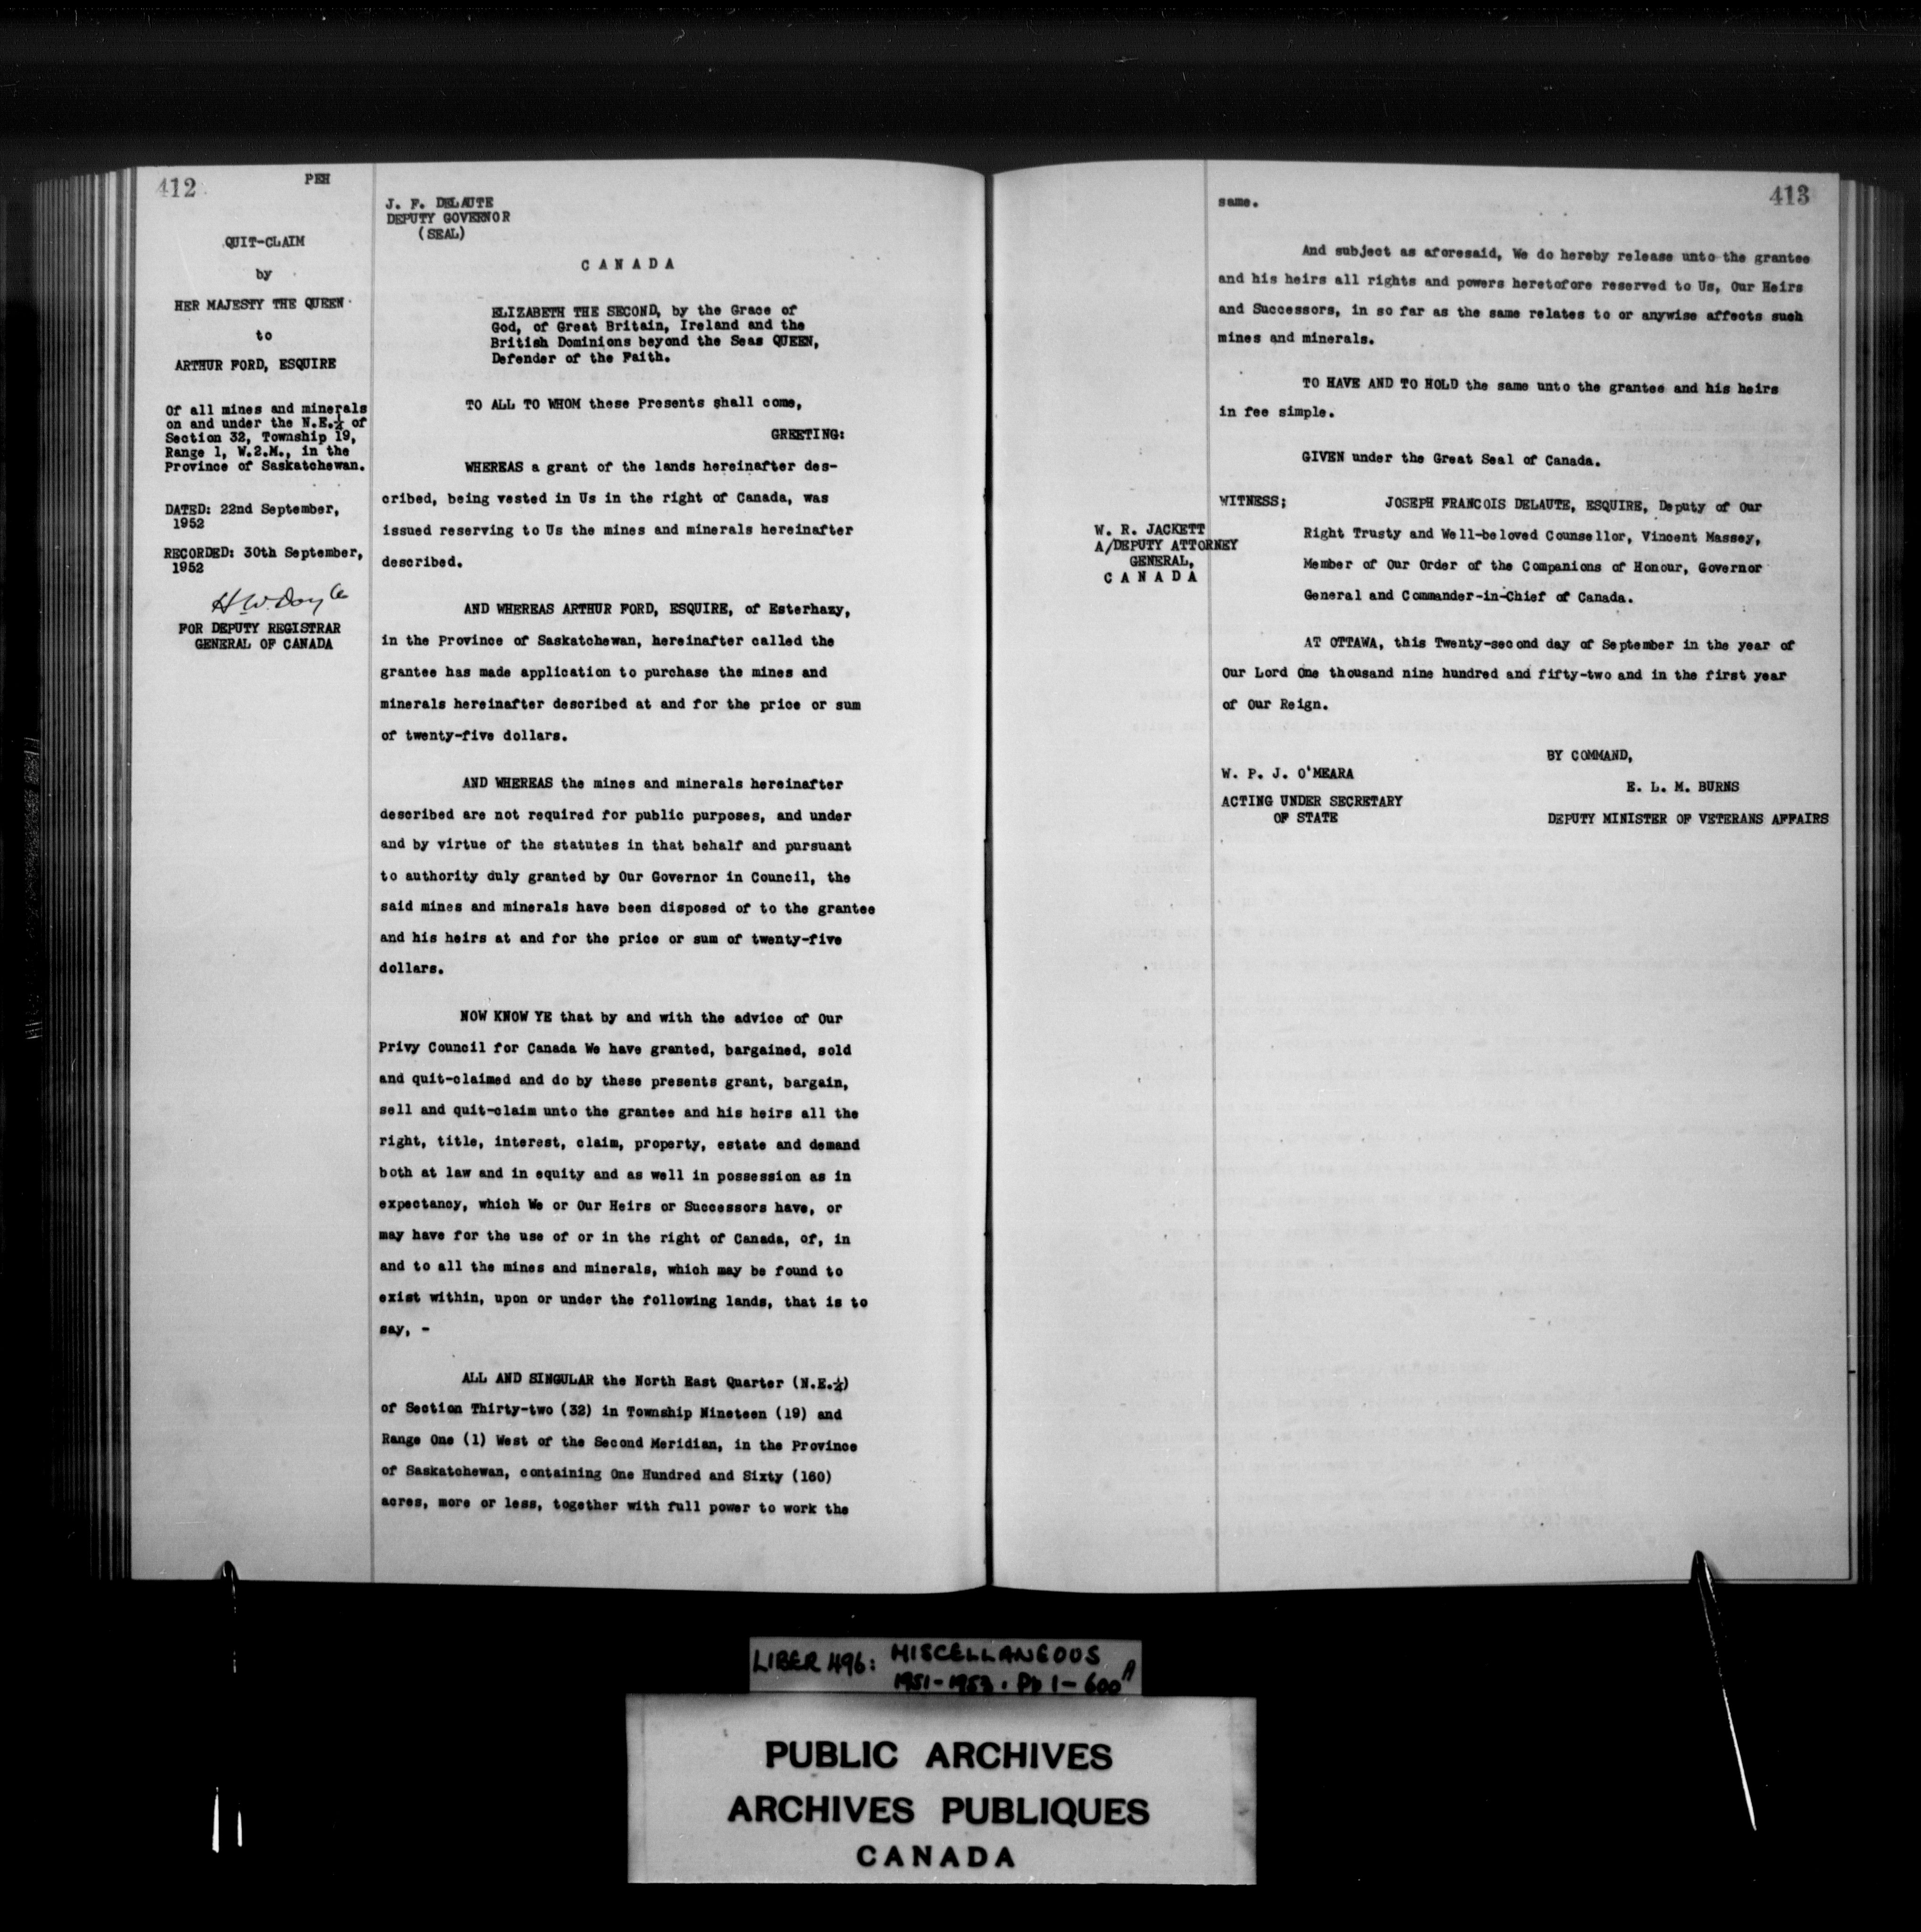 412
PEH
QUIT-CLAIM
by
HER MAJESTY THE QUEEN
to
ARTHUR FORD, ESQUIRE
Of all mines and minerals
on and under the N.E.¼ of
Section 32, Township 19,
Range 1, W.2.M., in the
Province of Saskatchewan.
DATED: 22nd September,
1952
RECORDED: 30th September,
1952
FOR DEPUTY REGISTRAR
GENERAL OF CANADA
J. F. DELAUTE
DEPUTY GOVERNOR
(SEAL)
C A N A D A
ELIZABETH THE SECOND, by the Grace of
God, of Great Britain, Ireland and the
British Dominions beyond the Seas QUEEN,
Defender of the Faith.
TO ALL TO WHOM these Presents shall come,
GREETING:
WHEREAS a grant of the lands hereinafter des-
cribed, being vested in Us in the right of Canada, was
issued reserving to Us the mines and minerals hereinafter
described.
AND WHEREAS ARTHUR FORD, ESQUIRE, of Esterhazy,
in the Province of Saskatchewan, hereinafter called the
grantee has made application to purchase the mines and
minerals hereinafter described at and for the price or sum
of twenty-five dollars.
AND WHEREAS the mines and minerals hereinafter
described are not required for public purposes, and under
and by virtue of the statutes in that behalf and pursuant
to authority duly granted by Our Governor in Council, the
said mines and minerals have been disposed of to the grantee
and his heirs at and for the price or sum of twenty-five
dollars.
NOW KNOW YE that by and with the advice of Our
Privy Council for Canada We have granted, bargained, sold
and quit-claimed and do by these presents grant, bargain,
sell and quit-claim unto the grantee and his heirs all the
right, title, interest, claim, property, estate and demand
both at law and in equity and as well in possession as in
expectancy, which We or Our Heirs or Successors have, or
may have for the use of or in the right of Canada, of, in
and to all the mines and minerals, which may be found to
exist within, upon or under the following lands, that is to
say, -
ALL AND SINGULAR the North East Quarter (N.E.¼)
of Section Thirty-two (32) in Township Nineteen (19) and
Range One (1) West of the Second Meridian, in the Province
of Saskatchewan, containing One Hundred and Sixty (160)
acres, more or less, together with full power to work the
413
same.
And subject as aforesaid, We do hereby release unto the grantee
and his heirs all rights and powers heretofore reserved to Us, Our Heirs
and Successors, in so far as the same relates to or anywise affects such
mines and minerals.
TO HAVE AND TO HOLD the same unto the grantee and his heirs
in fee simple.
GIVEN under the Great Seal of Canada.
W. R. JACKETT
A/DEPUTY ATTORNEY
GENERAL,
C A N A D A
WITNESS; JOSEPH FRANCOIS DELAUTE, ESQUIRE, Deputy of Our
Right Trusty and Well-beloved Counsellor, Vincent Massey,
Member of Our Order of the Companions of Honour, Governor
General and Commander-in-Chief of Canada.
AT OTTAWA, this Twenty-second day of September in the year of
Our Lord One thousand nine hundred and fifty-two and in the first year
of Our Reign.
BY COMMAND,
W. P. J. O'MEARA
ACTING UNDER SECRETARY
OF STATE
E. L. M. BURNS
DEPUTY MINISTER OF VETERANS AFFAIRS
LIBER 496: MISCELLANEOUS
1951-1953. Pp 1-600A
PUBLIC ARCHIVES
ARCHIVES PUBLIQUES
CANADA